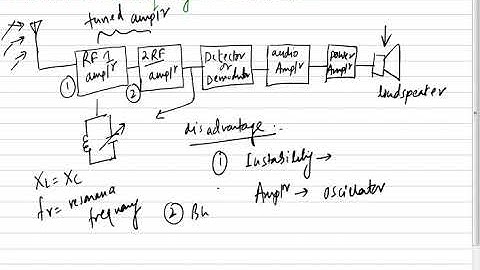 tuned amplr
RF 1
amplr
2RF
amplr
Detector
or
Demodulator
audio
Amplr
power
Amplr
loudspeaker
1
2
disadvantage :-
① Instability →
Amplr → oscillator
XL = XC
fr = resonance
frequency
② BW